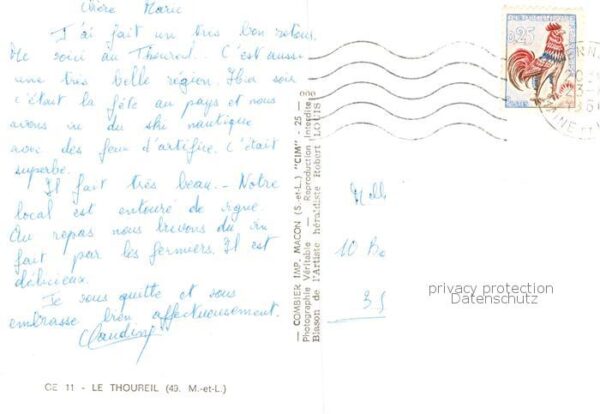 Chère Marie
J'ai fait un très bon retour.
Me voici au Thoureil. C'est aussi
une très belle région. Hier soir
c'était la fête au pays et nous
avons vu du ski nautique
avec des feux d'artifice. C'était
superbe.
Il fait très beau. - Notre
local est entouré de vigne.
Au repas nous buvons du vin
fait par les fermiers. Il est
délicieux.
Je vous quitte et vous
embrasse bien affectueusement.
Claudine
CE 11 - LE THOUREIL (49. M.-et-L.)
— COMBIER IMP. MACON (S.-et-L.) "CIM" - 25 -
Photographie Véritable - Reproduction Interdite
Blason de l'Artiste héraldiste Robert LOUIS
0,25
Melle
10
privacy protection
Datenschutz